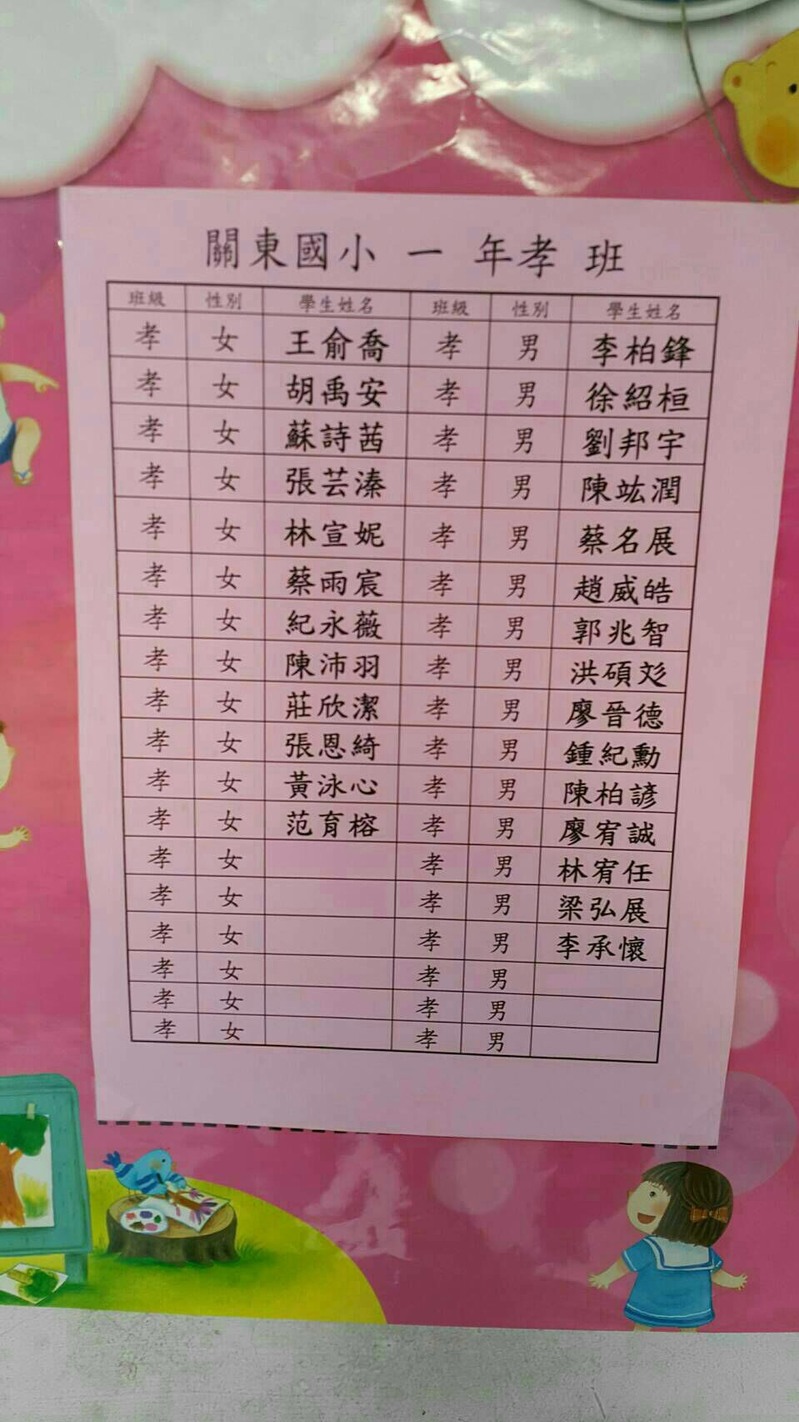 關東國小 一 年孝 班
班級 性別 學生姓名 班級 性別 學生姓名
孝 女 王俞喬 孝 男 李柏鋒
孝 女 胡禹安 孝 男 徐紹桓
孝 女 蘇詩茜 孝 男 劉邦宇
孝 女 張芸溱 孝 男 陳竑潤
孝 女 林宣妮 孝 男 蔡名展
孝 女 蔡雨宸 孝 男 趙威皓
孝 女 紀永薇 孝 男 郭兆智
孝 女 陳沛羽 孝 男 洪碩彣
孝 女 莊欣潔 孝 男 廖晉德
孝 女 張恩綺 孝 男 鍾紀勳
孝 女 黃泳心 孝 男 陳柏諺
孝 女 范育榕 孝 男 廖宥誠
孝 女 孝 男 林宥任
孝 女 孝 男 梁弘展
孝 女 孝 男 李承懷
孝 女 孝 男
孝 女 孝 男
孝 女 孝 男